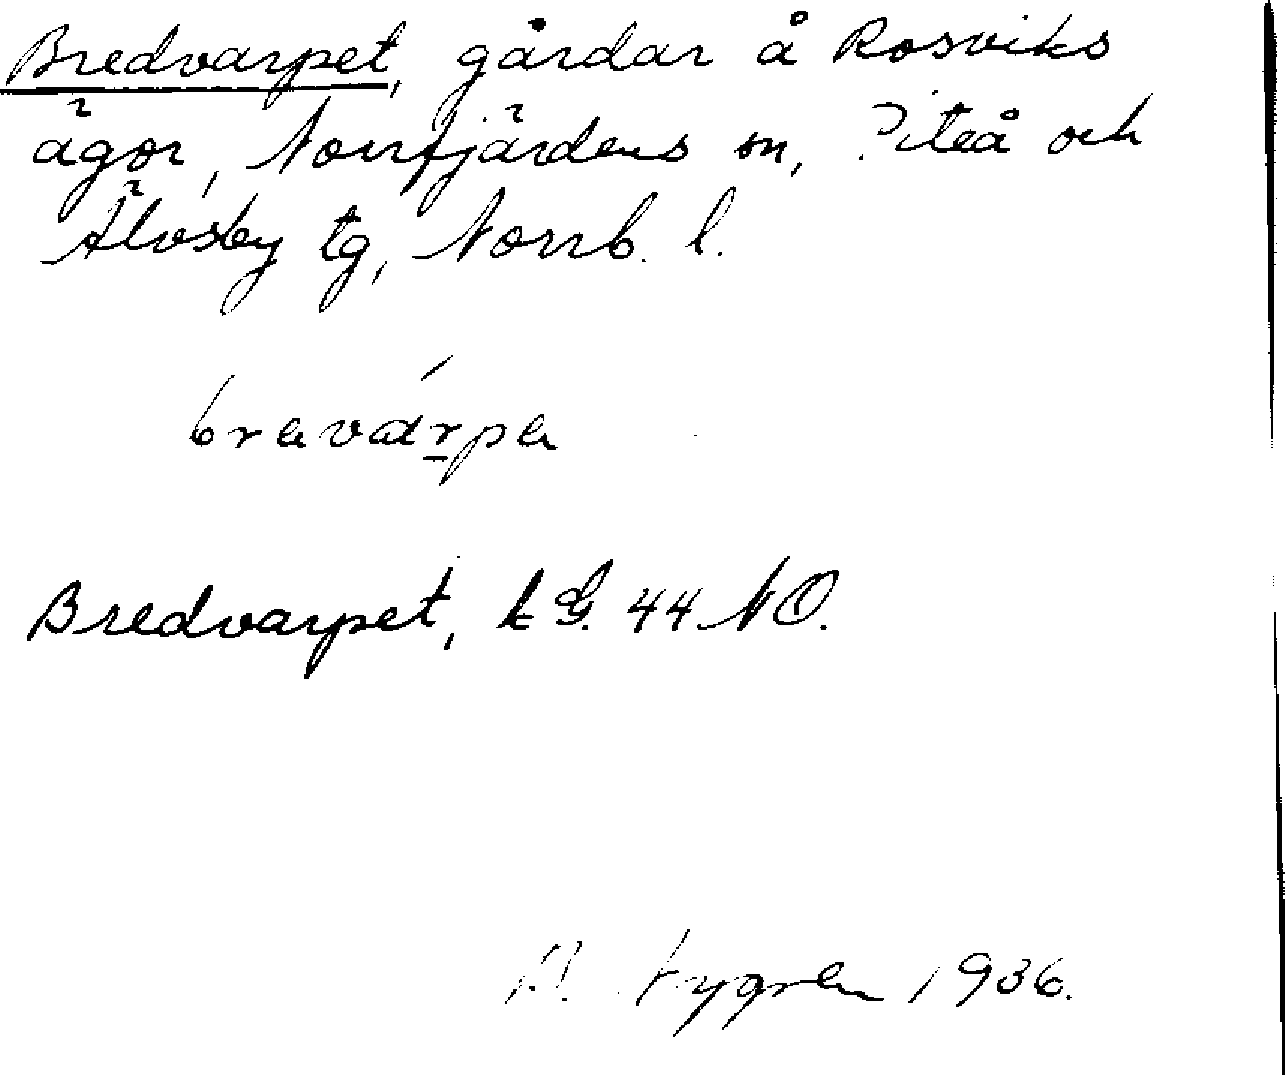 Bredvarpet, gårdar å Rosviks
ägor, Norrfjärdens sn, Piteå och
Älvsby tg, Norrb. l.
bravárpa
Bredvarpet, EG. 44 NO.
Nygren 1936.